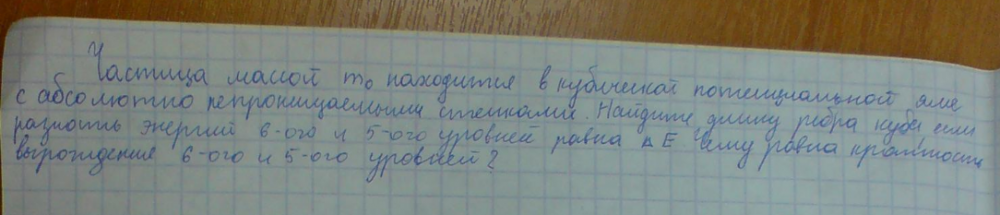 Частица массой m₀ находится в кубической потенциальной яме
с абсолютно непроницаемыми стенками. Найдите длину ребра куба, если
разность энергий 6-ого и 5-ого уровней равна ΔE. Чему равна кратность
вырождение 6-ого и 5-ого уровней?